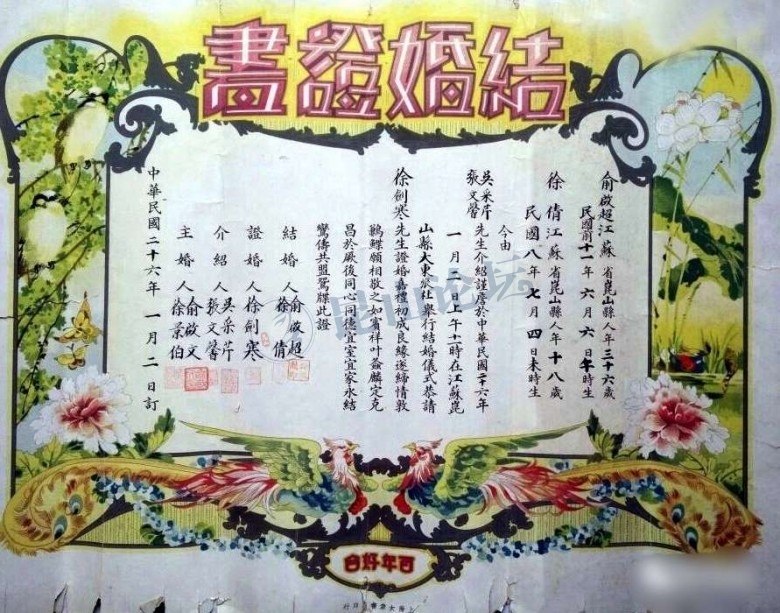 結婚證書
俞啟超江蘇省崑山縣人年三十六歲
民國前十一年六月六日午時生
徐倩江蘇省崑山縣人年十八歲
民國八年七月四日未時生
今由
吳采芹
張文馨
先生介紹謹詹於中華民國二十六年
一月二日上午十一時在江蘇崑
山縣大東旅社舉行結婚儀式恭請
徐劍寒先生證婚嘉禮初成良緣遂締情敦
鶼鰈願相敬之如賓祥叶螽麟定克
昌於厥後同心同德宜室宜家永結
鸞儔共盟鴛牒此證
結婚人
俞啟超
徐倩
證婚人徐劍寒
介紹人
吳采芹
張文馨
主婚人
俞啟文
徐景伯
中華民國二十六年一月二日訂
百年好合
昆山论坛